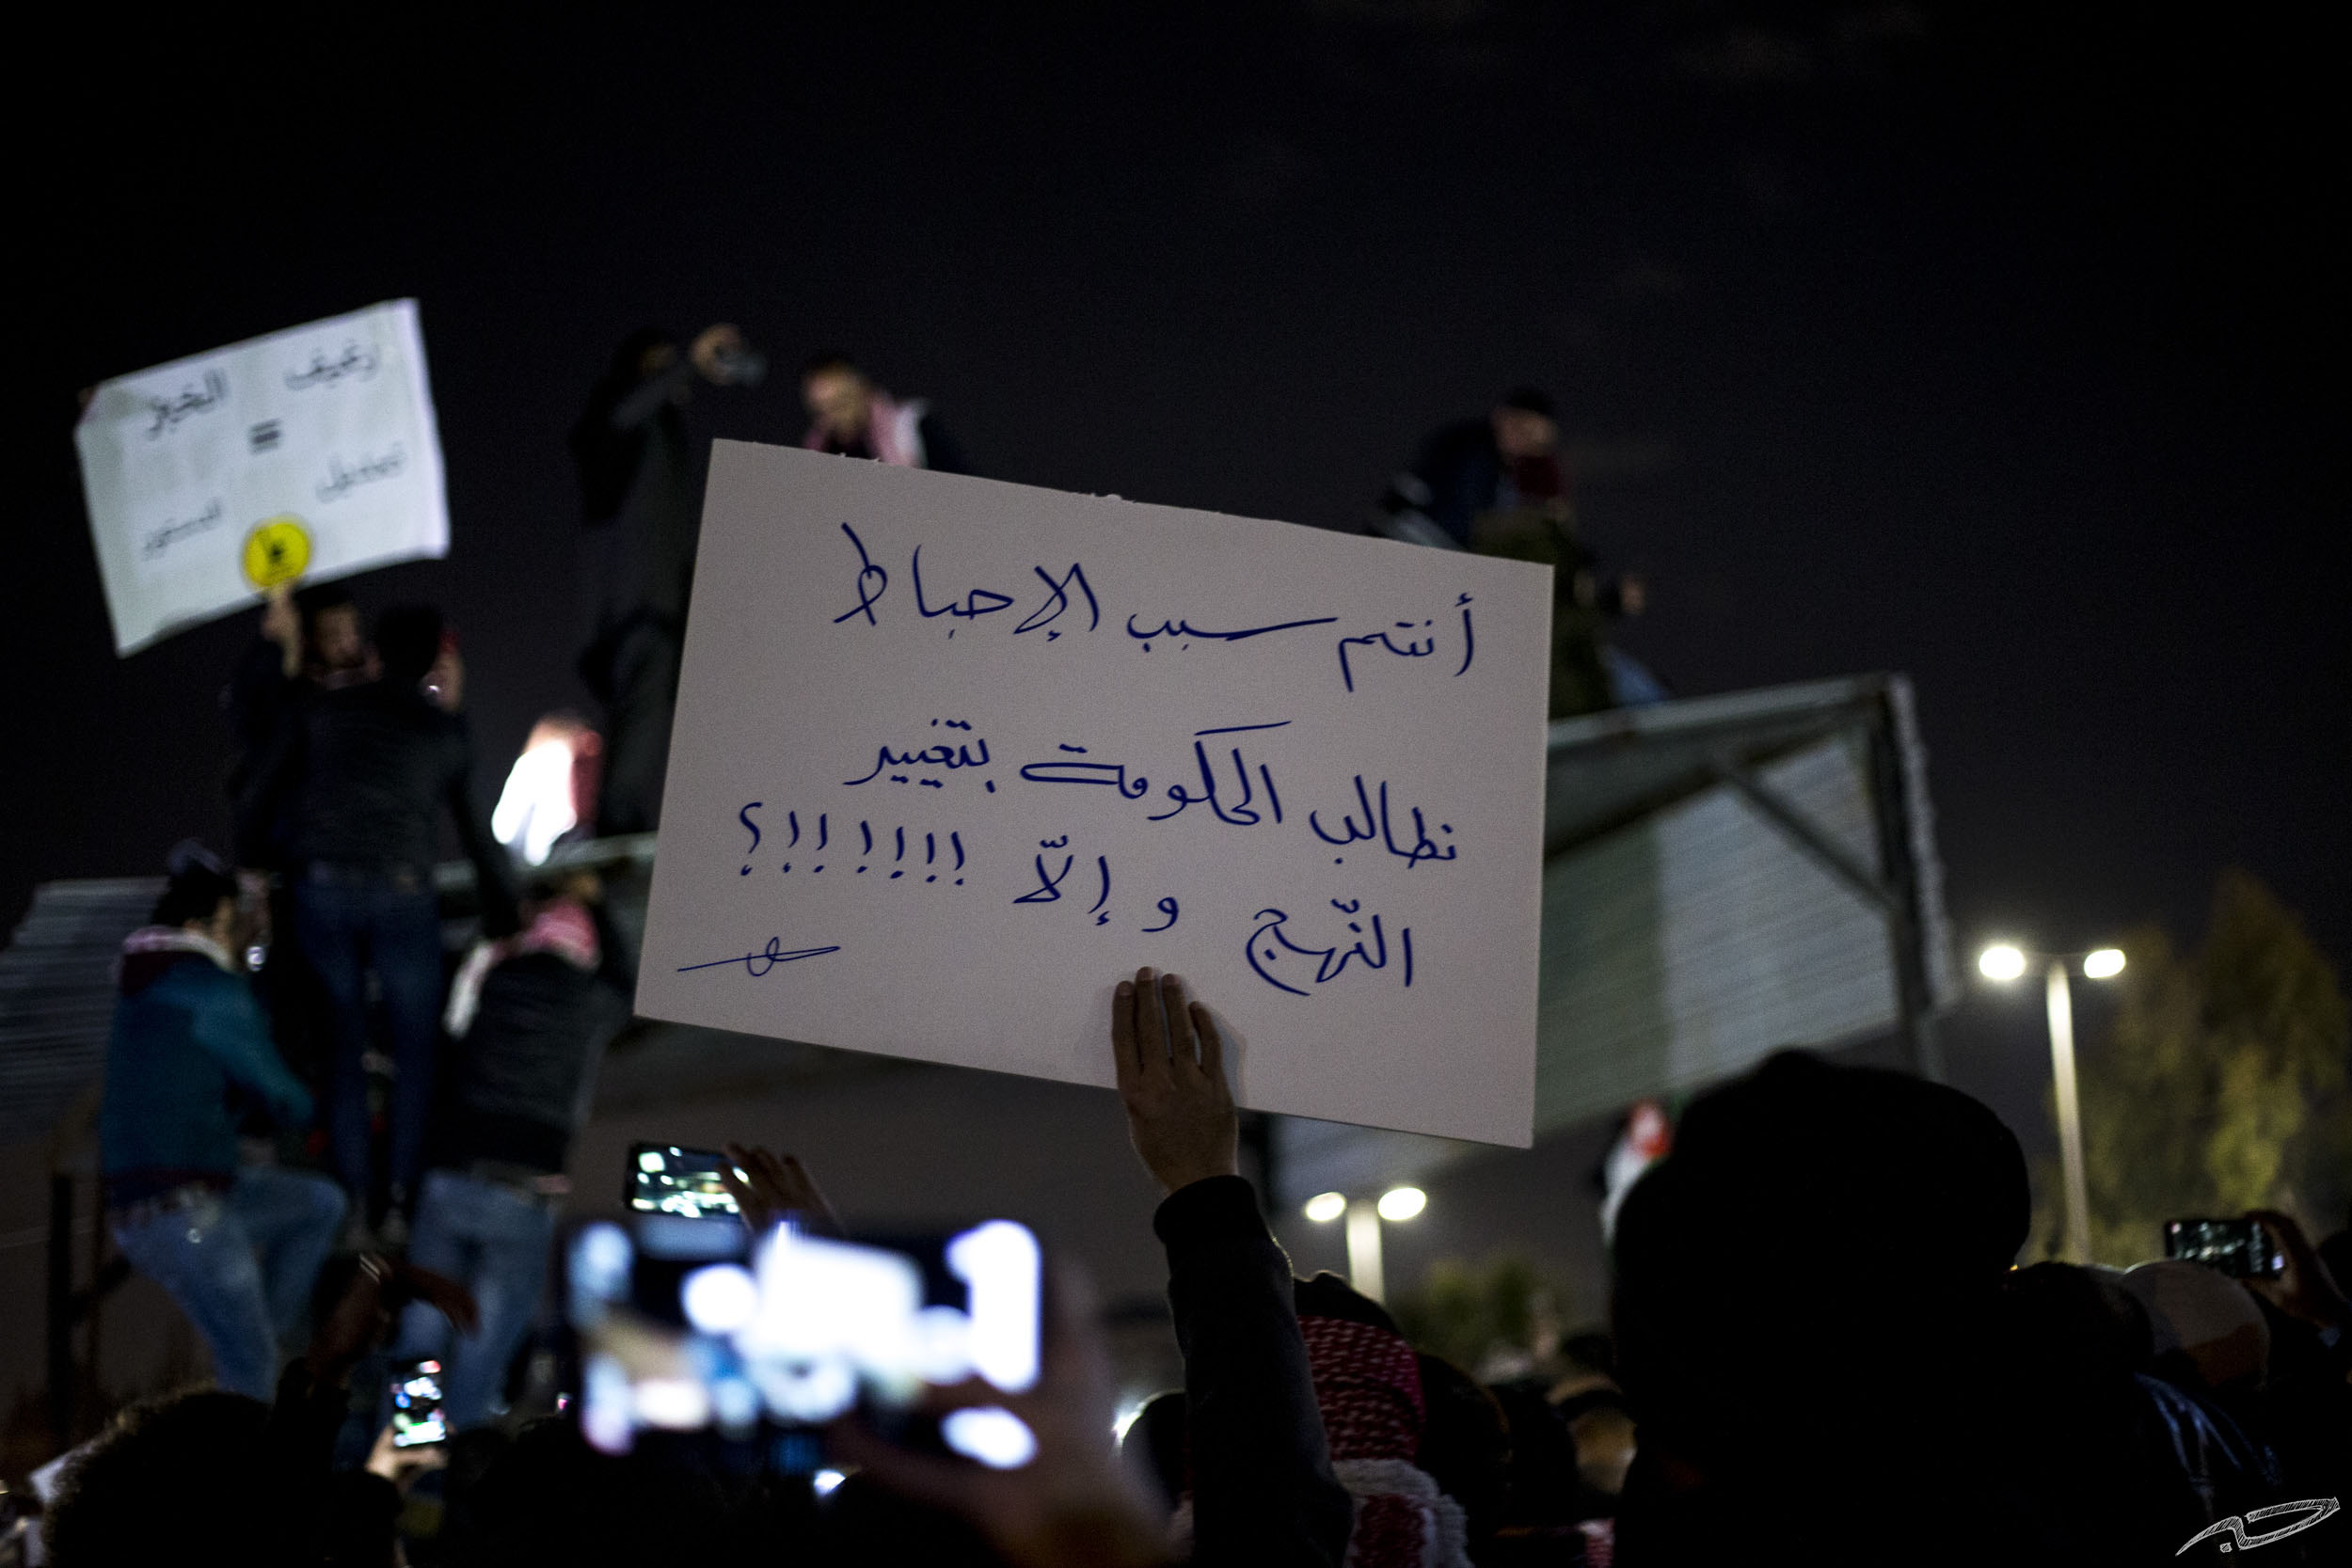 رغيف الخبز
=
تعديل الدستور
أنتم سبب الإحباط
نطالب الحكومة بتغيير
النّهج وإلاّ !!!!!!!؟